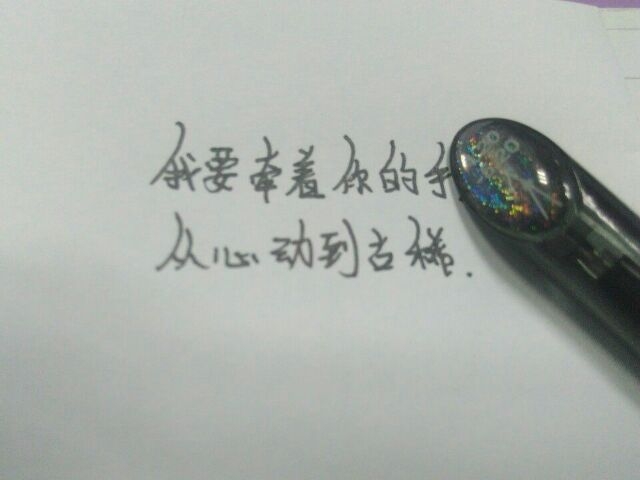 我要牵着你的手
从心动到古稀.